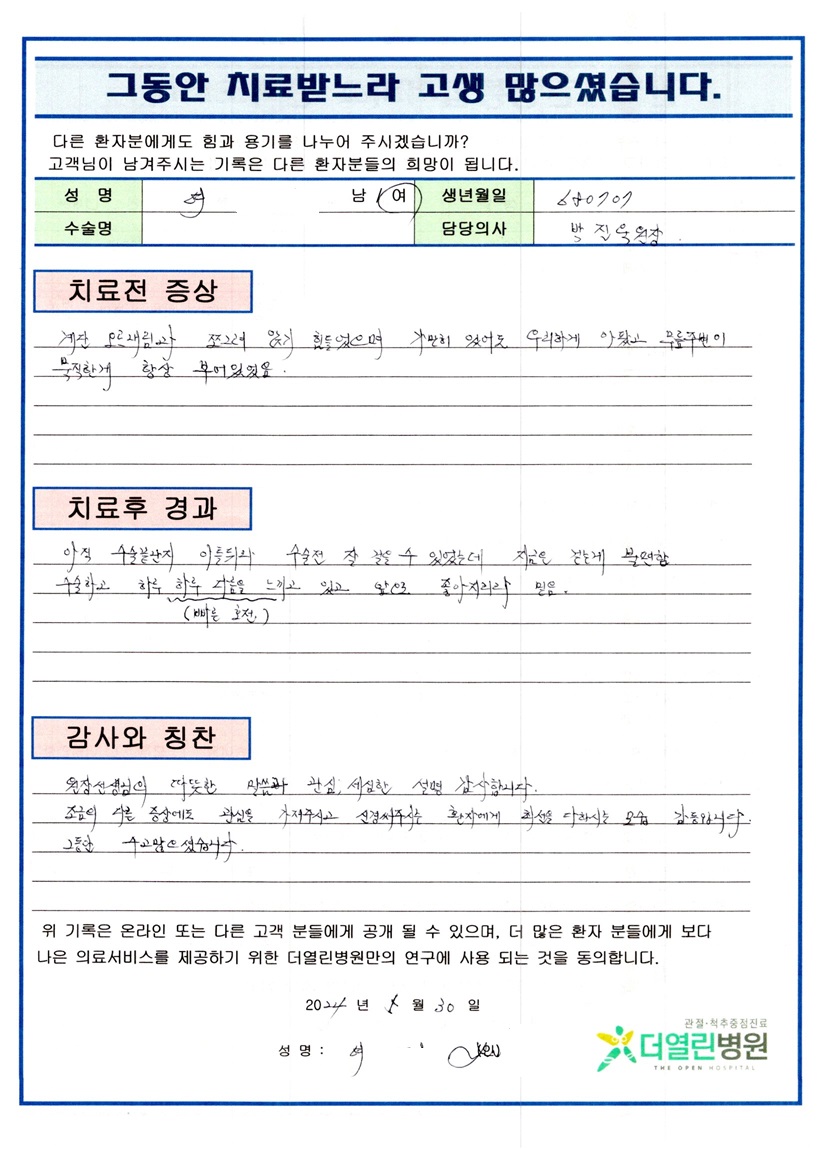 그동안 치료받느라 고생 많으셨습니다.
다른 환자분에게도 힘과 용기를 나누어 주시겠습니까?
고객님이 남겨주시는 기록은 다른 환자분들의 희망이 됩니다.
성 명 남 / 여 생년월일 680707
수술명 담당의사 박진욱원장.
치료전 증상
계단 오르내림과 쪼그려 앉기 힘들었으며 가만히 있어도 우리하게 아팠고 무릎주변이
묵직한게 항상 부어있었음.
치료후 경과
아직 수술한지 이틀되와 수술전 잘 걸을 수 있었는데 지금은 걷는게 불편함
수술하고 하루 하루 다름을 느끼고 있고 앞으로 좋아지리라 믿음.
(빠른 호전)
감사와 칭찬
원장선생님의 따뜻한 말씀과 관심, 세심한 설명 감사합니다.
조금의 다른 증상에도 관심을 가져주시고 신경써주시는 환자에게 최선을 다하시는 모습 감동입니다.
그동안 수고많으셨습니다.
위 기록은 온라인 또는 다른 고객 분들에게 공개 될 수 있으며, 더 많은 환자 분들에게 보다
나은 의료서비스를 제공하기 위한 더열린병원만의 연구에 사용 되는 것을 동의합니다.
2024 년 월 30 일
성 명 : (인)
관절·척추중점진료
더열린병원
THE OPEN HOSPITAL